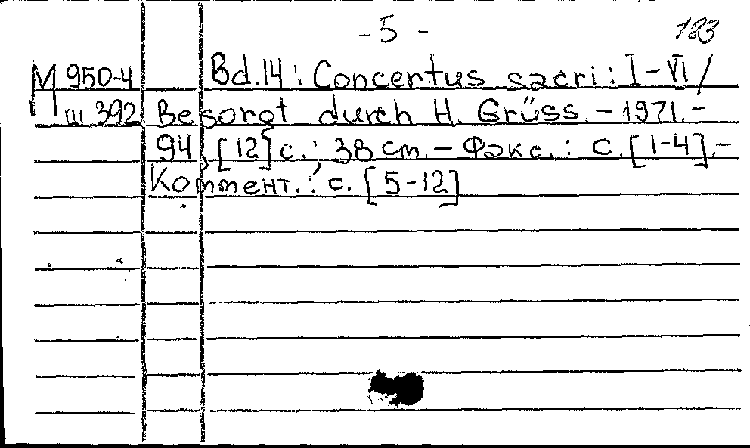 - 5 -
183
М 950-4 Bd.14: Concertus sacri: I-VI /
Ш 392 Besorgt durch H. Grüss. - 1971. -
94, [12] с.; 38 cm. - Факс.: С. [1-4]. -
Коммент.: с. [5-12]